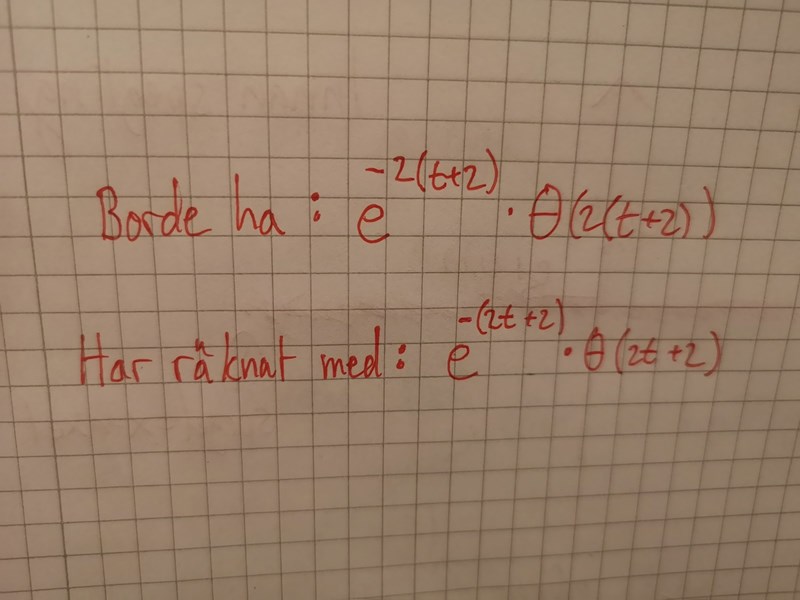 Borde ha: e^{-2(t+2)} · θ(2(t+2))
Har räknat med: e^{-(2t+2)} · θ(2t+2)